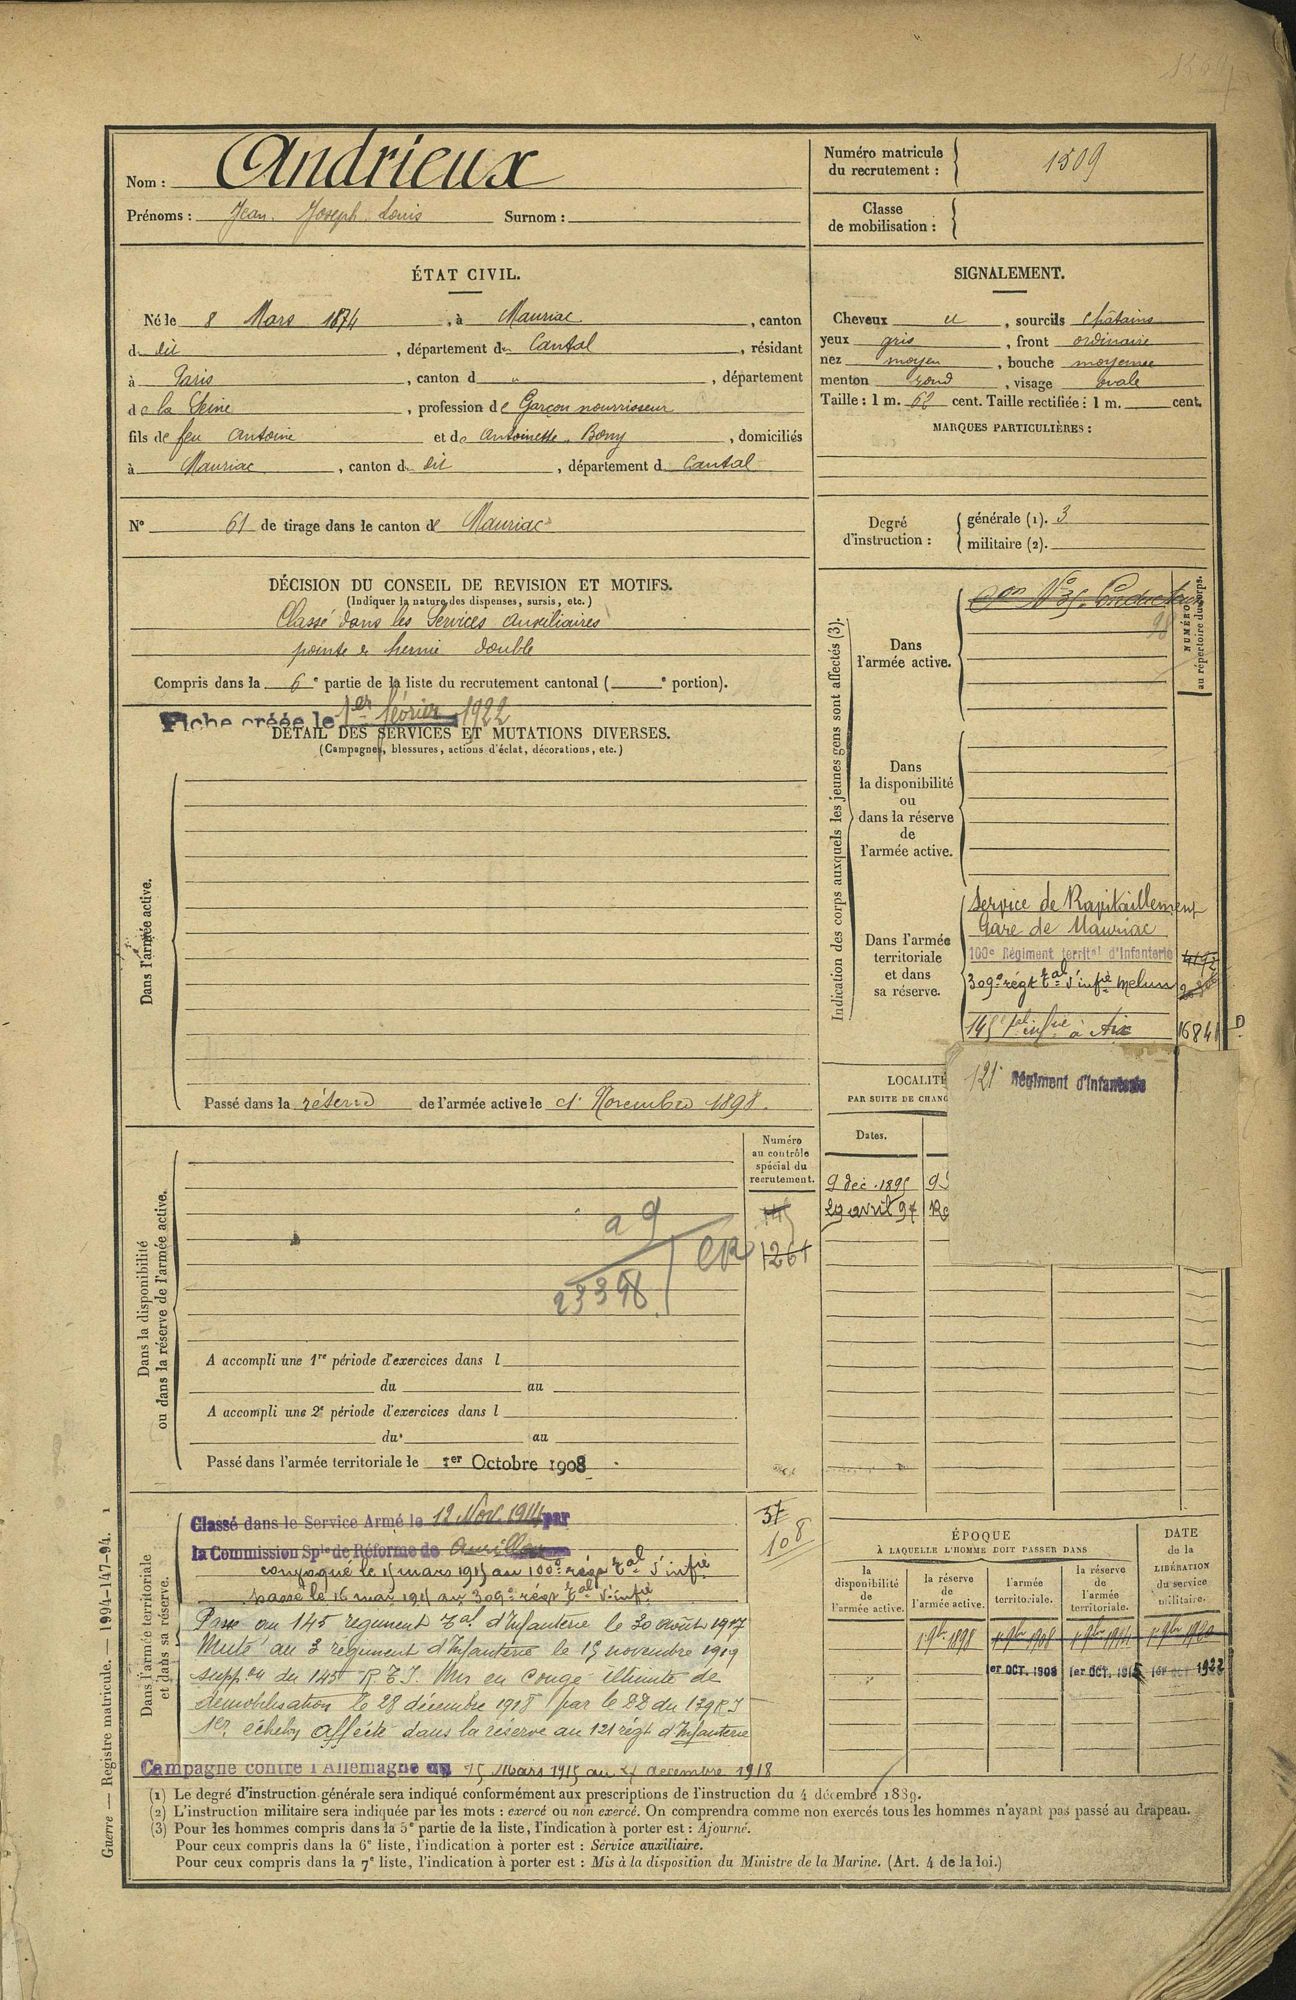 1509
Nom : Andrieux
Prénoms : Jean Joseph Louis Surnom :
Numéro matricule du recrutement : 1509
Classe de mobilisation :
ÉTAT CIVIL.
Né le 8 Mars 1874, à Mauriac, canton
d dit, département du Cantal, résidant
à Paris, canton d ", département
de la Seine, profession de Garçon nourrisseur
fils de feu Antoine et de Antoinette Bony, domiciliés
à Mauriac, canton d dit, département d Cantal
N° 61 de tirage dans le canton de Mauriac
SIGNALEMENT.
Cheveux et, sourcils châtains
yeux gris, front ordinaire
nez moyen, bouche moyenne
menton rond, visage ovale
Taille : 1 m. 62 cent. Taille rectifiée : 1 m. cent.
MARQUES PARTICULIÈRES :
Degré d'instruction : générale (1). 3
militaire (2).
DÉCISION DU CONSEIL DE REVISION ET MOTIFS.
(Indiquer la nature des dispenses, sursis, etc.)
Classé dans les Services auxiliaires
pointe de hernie double
Compris dans la 6e partie de la liste du recrutement cantonal ( e portion).
Fiche créée le 1er février 1922
DÉTAIL DES SERVICES ET MUTATIONS DIVERSES.
(Campagnes, blessures, actions d'éclat, décorations, etc.)
Dans l'armée active.
Passé dans la réserve de l'armée active le 1 Novembre 1898.
Indication des corps auxquels les jeunes gens sont affectés (3).
NUMÉRO au répertoire du corps.
Dans l'armée active.
Dans la disponibilité ou dans la réserve de l'armée active.
Dans l'armée territoriale et dans sa réserve.
Service de Ravitaillement
Gare de Mauriac
100e Régiment territal d'Infanterie
309e régt tal d'infie Melun
145e tal infie à Aix 16841
121e Régiment d'Infanterie
LOCALITÉ
PAR SUITE DE CHANG
Dates.
9 déc. 1895
29 avril 97
Dans la disponibilité ou dans la réserve de l'armée active.
Numéro au contrôle spécial du recrutement.
145
1261
a 9
23398
CR
A accompli une 1re période d'exercices dans l
du au
A accompli une 2e période d'exercices dans l
du au
Passé dans l'armée territoriale le 1er Octobre 1908
Dans l'armée territoriale et dans sa réserve.
37
108
Classé dans le Service Armé le 12 Nov. 1914 par
la Commission Sple de Réforme de Aurillac
convoqué le 15 mars 1915 au 100e régt tal d'infie
passé le 16 mai 1915 au 309e régt tal d'infie
Passe au 145 régiment tal d'Infanterie le 30 août 1917
Muté au 3 régiment d'Infanterie le 15 novembre 1919
suppon du 145 R.T.I. Mis en congé illimité de
démobilisation le 28 décembre 1918 par le 22 du 139 R I
1er échelon affecté dans la réserve au 121 régt d'Infanterie
Campagne contre l'Allemagne du 15 Mars 1915 au 27 décembre 1918
ÉPOQUE
À LAQUELLE L'HOMME DOIT PASSER DANS
DATE de la LIBÉRATION du service militaire.
la disponibilité de l'armée active.
la réserve de l'armée active.
l'armée territoriale.
la réserve de l'armée territoriale.
1 9bre 1898 1 9bre 1908 1 9bre 1914 1 9bre 1920
1er OCT. 1908 1er OCT. 1915 1er OCT 1922
(1) Le degré d'instruction générale sera indiqué conformément aux prescriptions de l'instruction du 4 décembre 1889.
(2) L'instruction militaire sera indiquée par les mots : exercé ou non exercé. On comprendra comme non exercés tous les hommes n'ayant pas passé au drapeau.
(3) Pour les hommes compris dans la 5e partie de la liste, l'indication à porter est : Ajourné.
Pour ceux compris dans la 6e liste, l'indication à porter est : Service auxiliaire.
Pour ceux compris dans la 7e liste, l'indication à porter est : Mis à la disposition du Ministre de la Marine. (Art. 4 de la loi.)
Guerre — Registre matricule. — 1994-147-94. 1